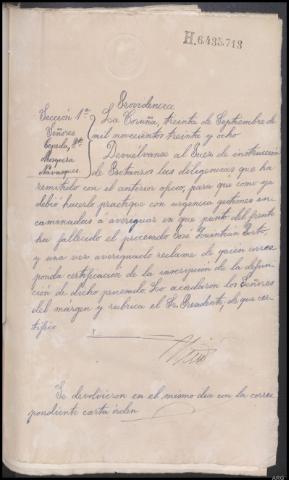 H.6.435.713
Providencia
Sección 1ª
Señores
Cepeda, Pte.
Mosquera
Navarques
La Coruña, treinta de Septiembre de
mil novecientos treinta y ocho
Devuélvanse al Juez de instrucción
de Betanzos las diligencias que ha
remitido con el anterior oficio, para que como ya
debió hacerlo practique con urgencia gestiones en-
caminadas á averiguar en que punto del frente
ha fallecido el procesado José
y una vez averiguado reclame de quien corres-
ponda certificación de la inscripción de la defun-
ción de dicho penado. Lo acordaron los Señores
del márgen y rubrica el Sr. Presidente, de que cer-
tifico
Se devolvieron en el mismo dia con la corres-
pondiente carta órden